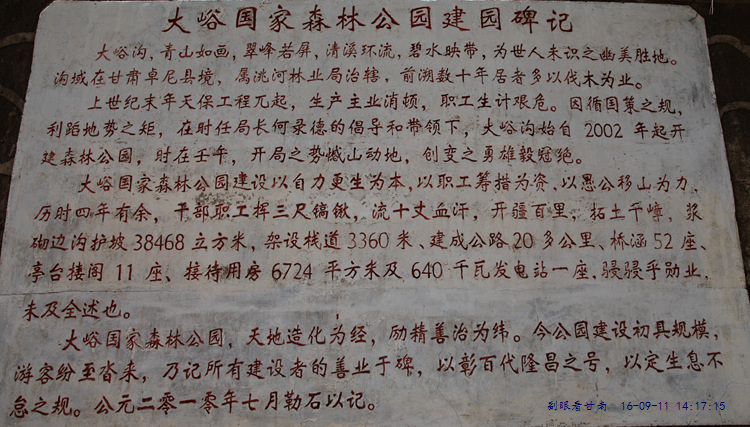 大峪国家森林公园建园碑记
大峪沟,青山如画,翠峰若屏,清溪环流,碧水映带,为世人未识之幽美胜地。
沟域在甘肃卓尼县境,属洮河林业局治辖,前溯数十年居者多以伐木为业。
上世纪末年天保工程兀起,生产主业消顿,职工生计艰危。因循国策之规,
利蹈地势之矩,在时任局长何录德的倡导和带领下,大峪沟始自 2002 年起开
建森林公园,时在壬午,开局之势憾山动地,创变之勇雄毅冠绝。
大峪国家森林公园建设以自力更生为本,以职工筹措为资,以愚公移山为力,
历时四年有余,干部职工挥三尺镐锹,流十丈血汗,开疆百里,拓土千嶂,浆
砌边沟护坡 38468 立方米,架设栈道 3360 米、建成公路 20 多公里、桥涵 52 座、
亭台楼阁 11 座、接待用房 6724 平方米及 640 千瓦发电站一座,骎骎乎勋业,
未及全述也。
大峪国家森林公园,天地造化为经,励精善治为纬。今公园建设初具规模,
游客纷至沓来,乃记所有建设者的善业于碑,以彰百代隆昌之号,以定生息不
怠之规。公元二零一零年七月勒石以记。
别眼看甘南 16-09-11 14:17:15